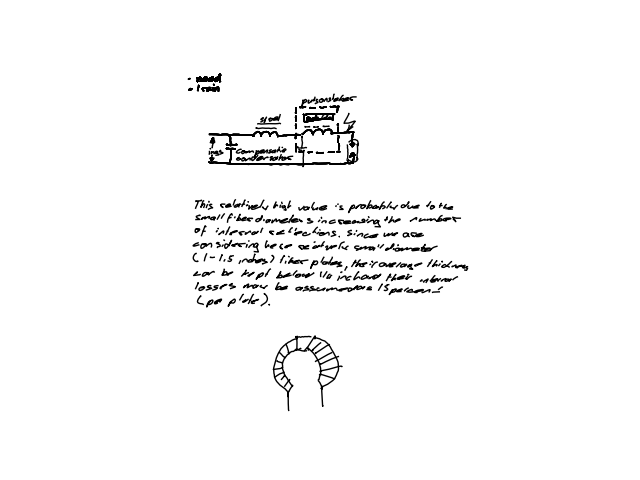 - need
- 1 min
pulsonstarter
compensatie
condensator
This relatively high value is probably due to the
small fiber diameters increasing the number
of internal reflections. Since we are
considering here relatively small diameter
(1-1.5 inches) fiber plates, their average thickness
can be kept below 1/2 inch and their internal
losses may be assumed as 15 percent
(per plate).